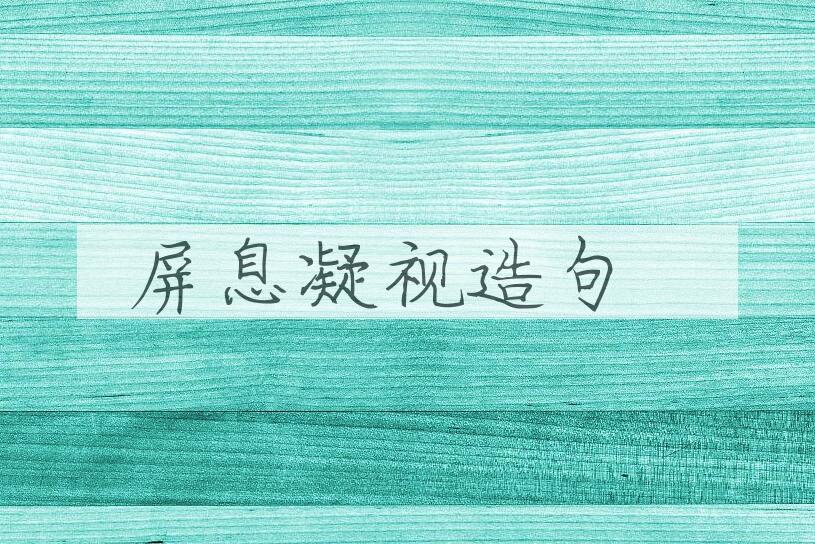 屏息凝视造句